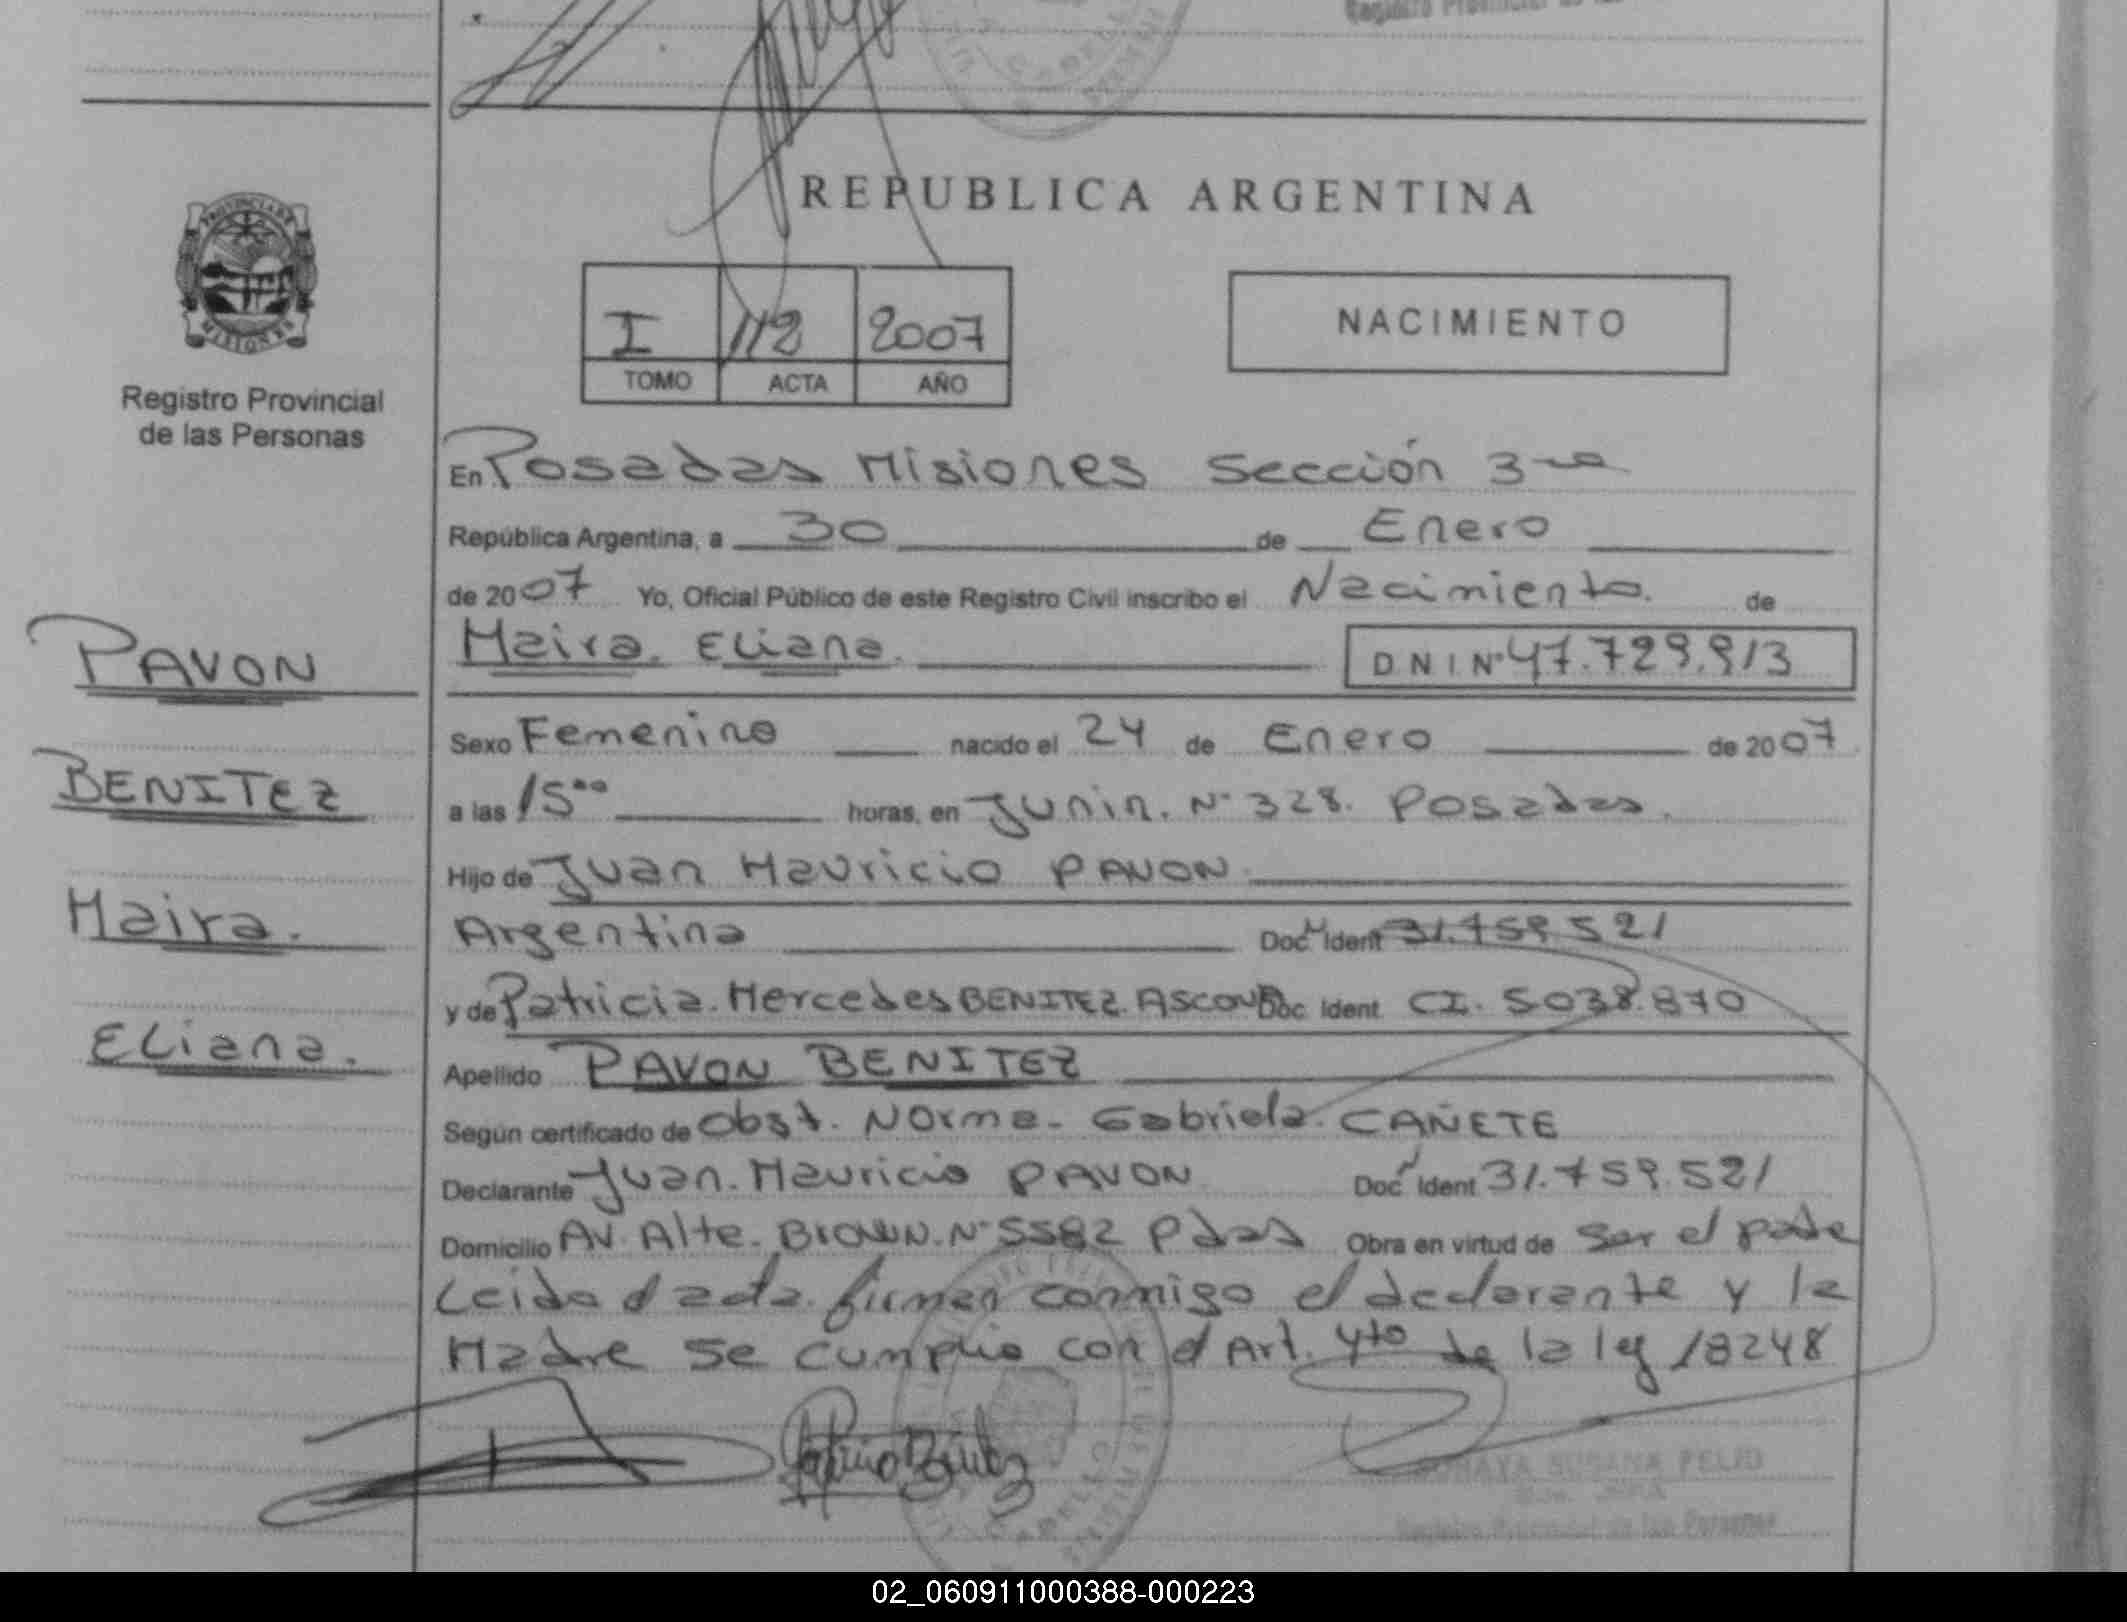 Registro Provincial de las
REPUBLICA ARGENTINA
PROVINCIA DE
MISIONES
Registro Provincial
de las Personas
I 112 2007
TOMO ACTA AÑO
NACIMIENTO
En Posadas Misiones Sección 3ra
República Argentina, a 30 de Enero
de 2007 Yo, Oficial Público de este Registro Civil inscribo el Nacimiento. de
Maira. Eliana. D N I. Nº 47.729.913
PAVON
Sexo Femenino nacido el 24 de Enero de 2007
BENITEZ
a las 15⁰⁰ horas, en Junin. Nº 328. Posadas.
Hijo de Juan Mauricio PAVON
Maira.
Argentina Doc Ident 31.759.521
y de Patricia. Mercedes BENITEZ. Doc Ident CI. 5038.870
Eliana.
Apellido PAVON BENITEZ
Según certificado de Obst. Norma. Gabriela. CAÑETE
Declarante Juan. Mauricio PAVON Doc Ident 31.759.521
Domicilio AV. Alte. Brown. Nº 5582 Pdas Obra en virtud de ser el padre
Leida el acta. firman conmigo el declarante y la
Madre se cumplio con el Art. 4to de la ley 18248
SORAYA SUSANA
Registro Provincial de las Personas
02_060911000388-000223